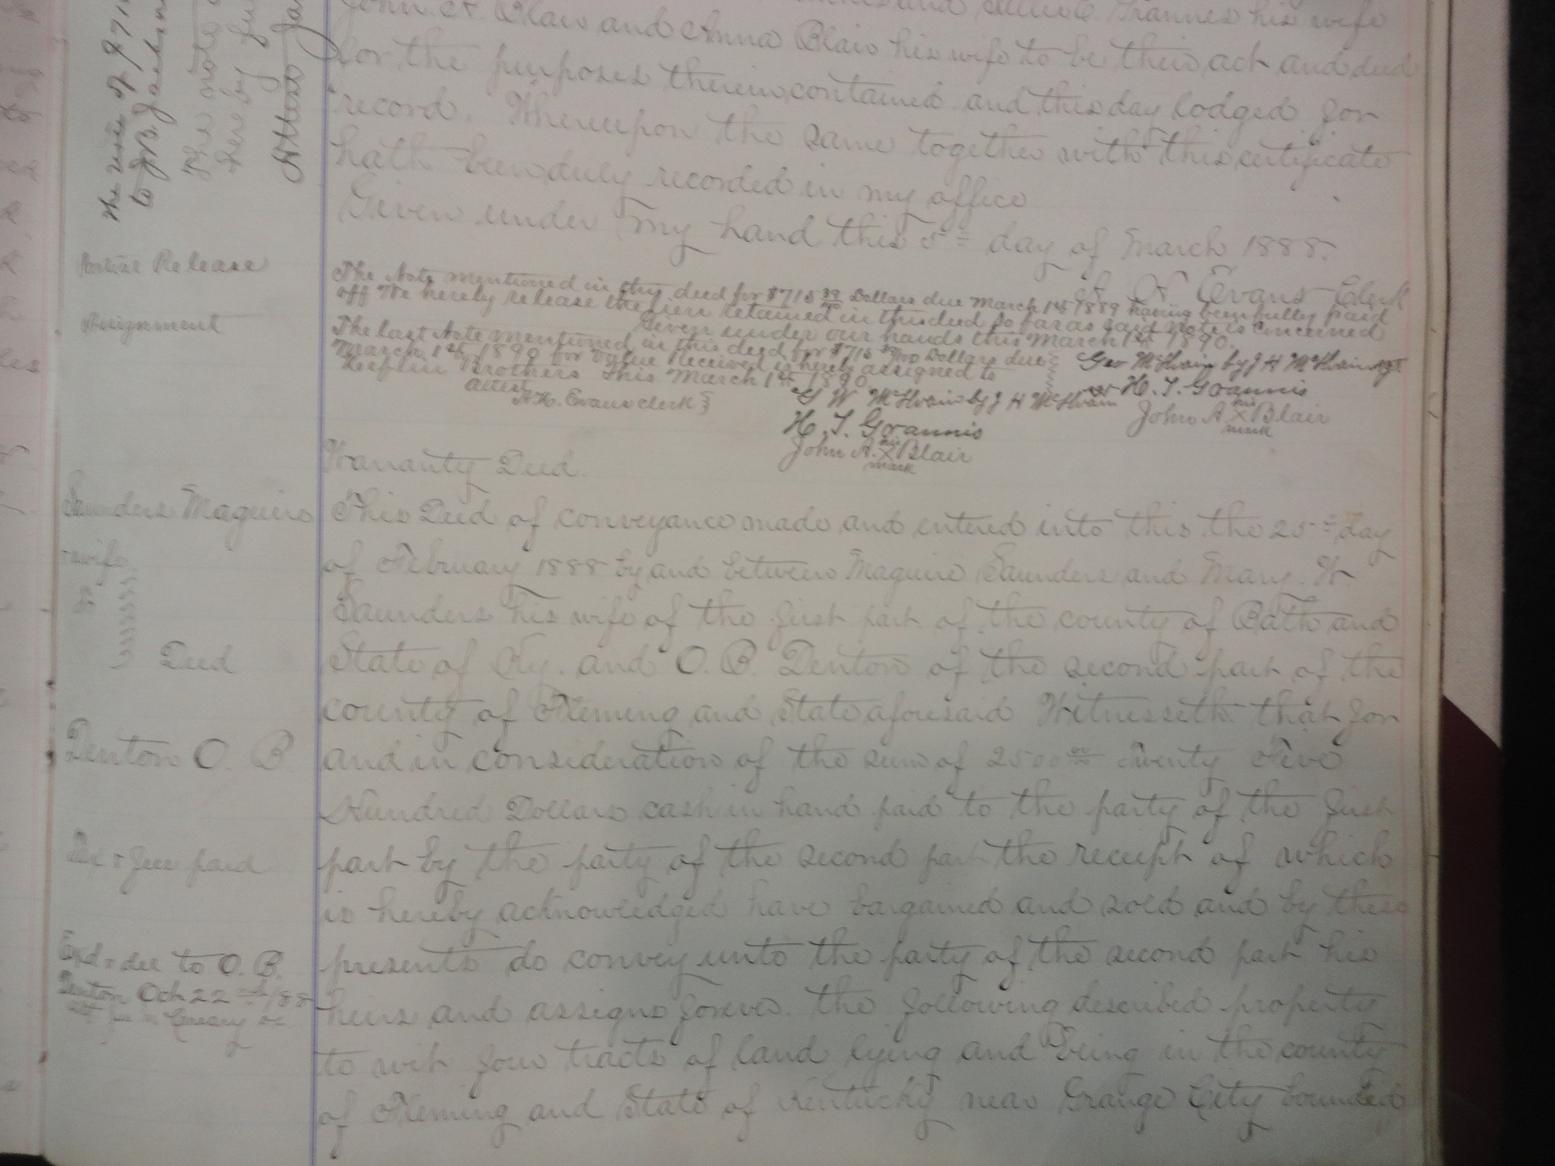 his wife
John A. Blair and Anna Blair his wife to be their act and deed
for the purposes therein contained and this day lodged for
record. Whereupon the same together with this certificate
hath been duly recorded in my office
Given under my hand this 5th day of March 1888.
Evans Clerk
Partial Release
The Note mentioned in this deed for $715 Dollars due March 1st 1889 having been fully paid
off We hereby release the lien retained in this deed so far as said note is concerned
Given under our hands this March 1st 1890.
Assignment
The last Note mentioned in this deed for $715 Dollars due
March 1st 1890 for value Received is hereby assigned to
Brothers This March 1st 1890
attest
Evans clerk
Geo McIlvain by J H McIlvain Agt
H. T. Grannis
John A. X Blair
his
mark
G W McIlvain by J H McIlvain
H. T. Grannis
his
John A. X Blair
mark
Warranty Deed.
Saunders Maguire
& wife
to
Deed
Denton O. B.
Tax & fees paid
Exd & del to O. B.
Denton Oct 22nd 188
This Deed of conveyance made and entered into this the 25th day
of February 1888 by and between Maguire Saunders and Mary H
Saunders his wife of the first part of the county of Bath and
State of Ky. and O. B. Denton of the second part of the
county of Fleming and State aforesaid Witnesseth that for
and in consideration of the sum of 2500 00 Twenty Five
Hundred Dollars cash in hand paid to the party of the first
part by the party of the second part the receipt of which
is hereby acknowledged have bargained and sold and by these
presents do convey unto the party of the second part his
heirs and assigns forever the following described property
to wit four tracts of land lying and being in the county
of Fleming and State of Kentucky near Grange City bounded